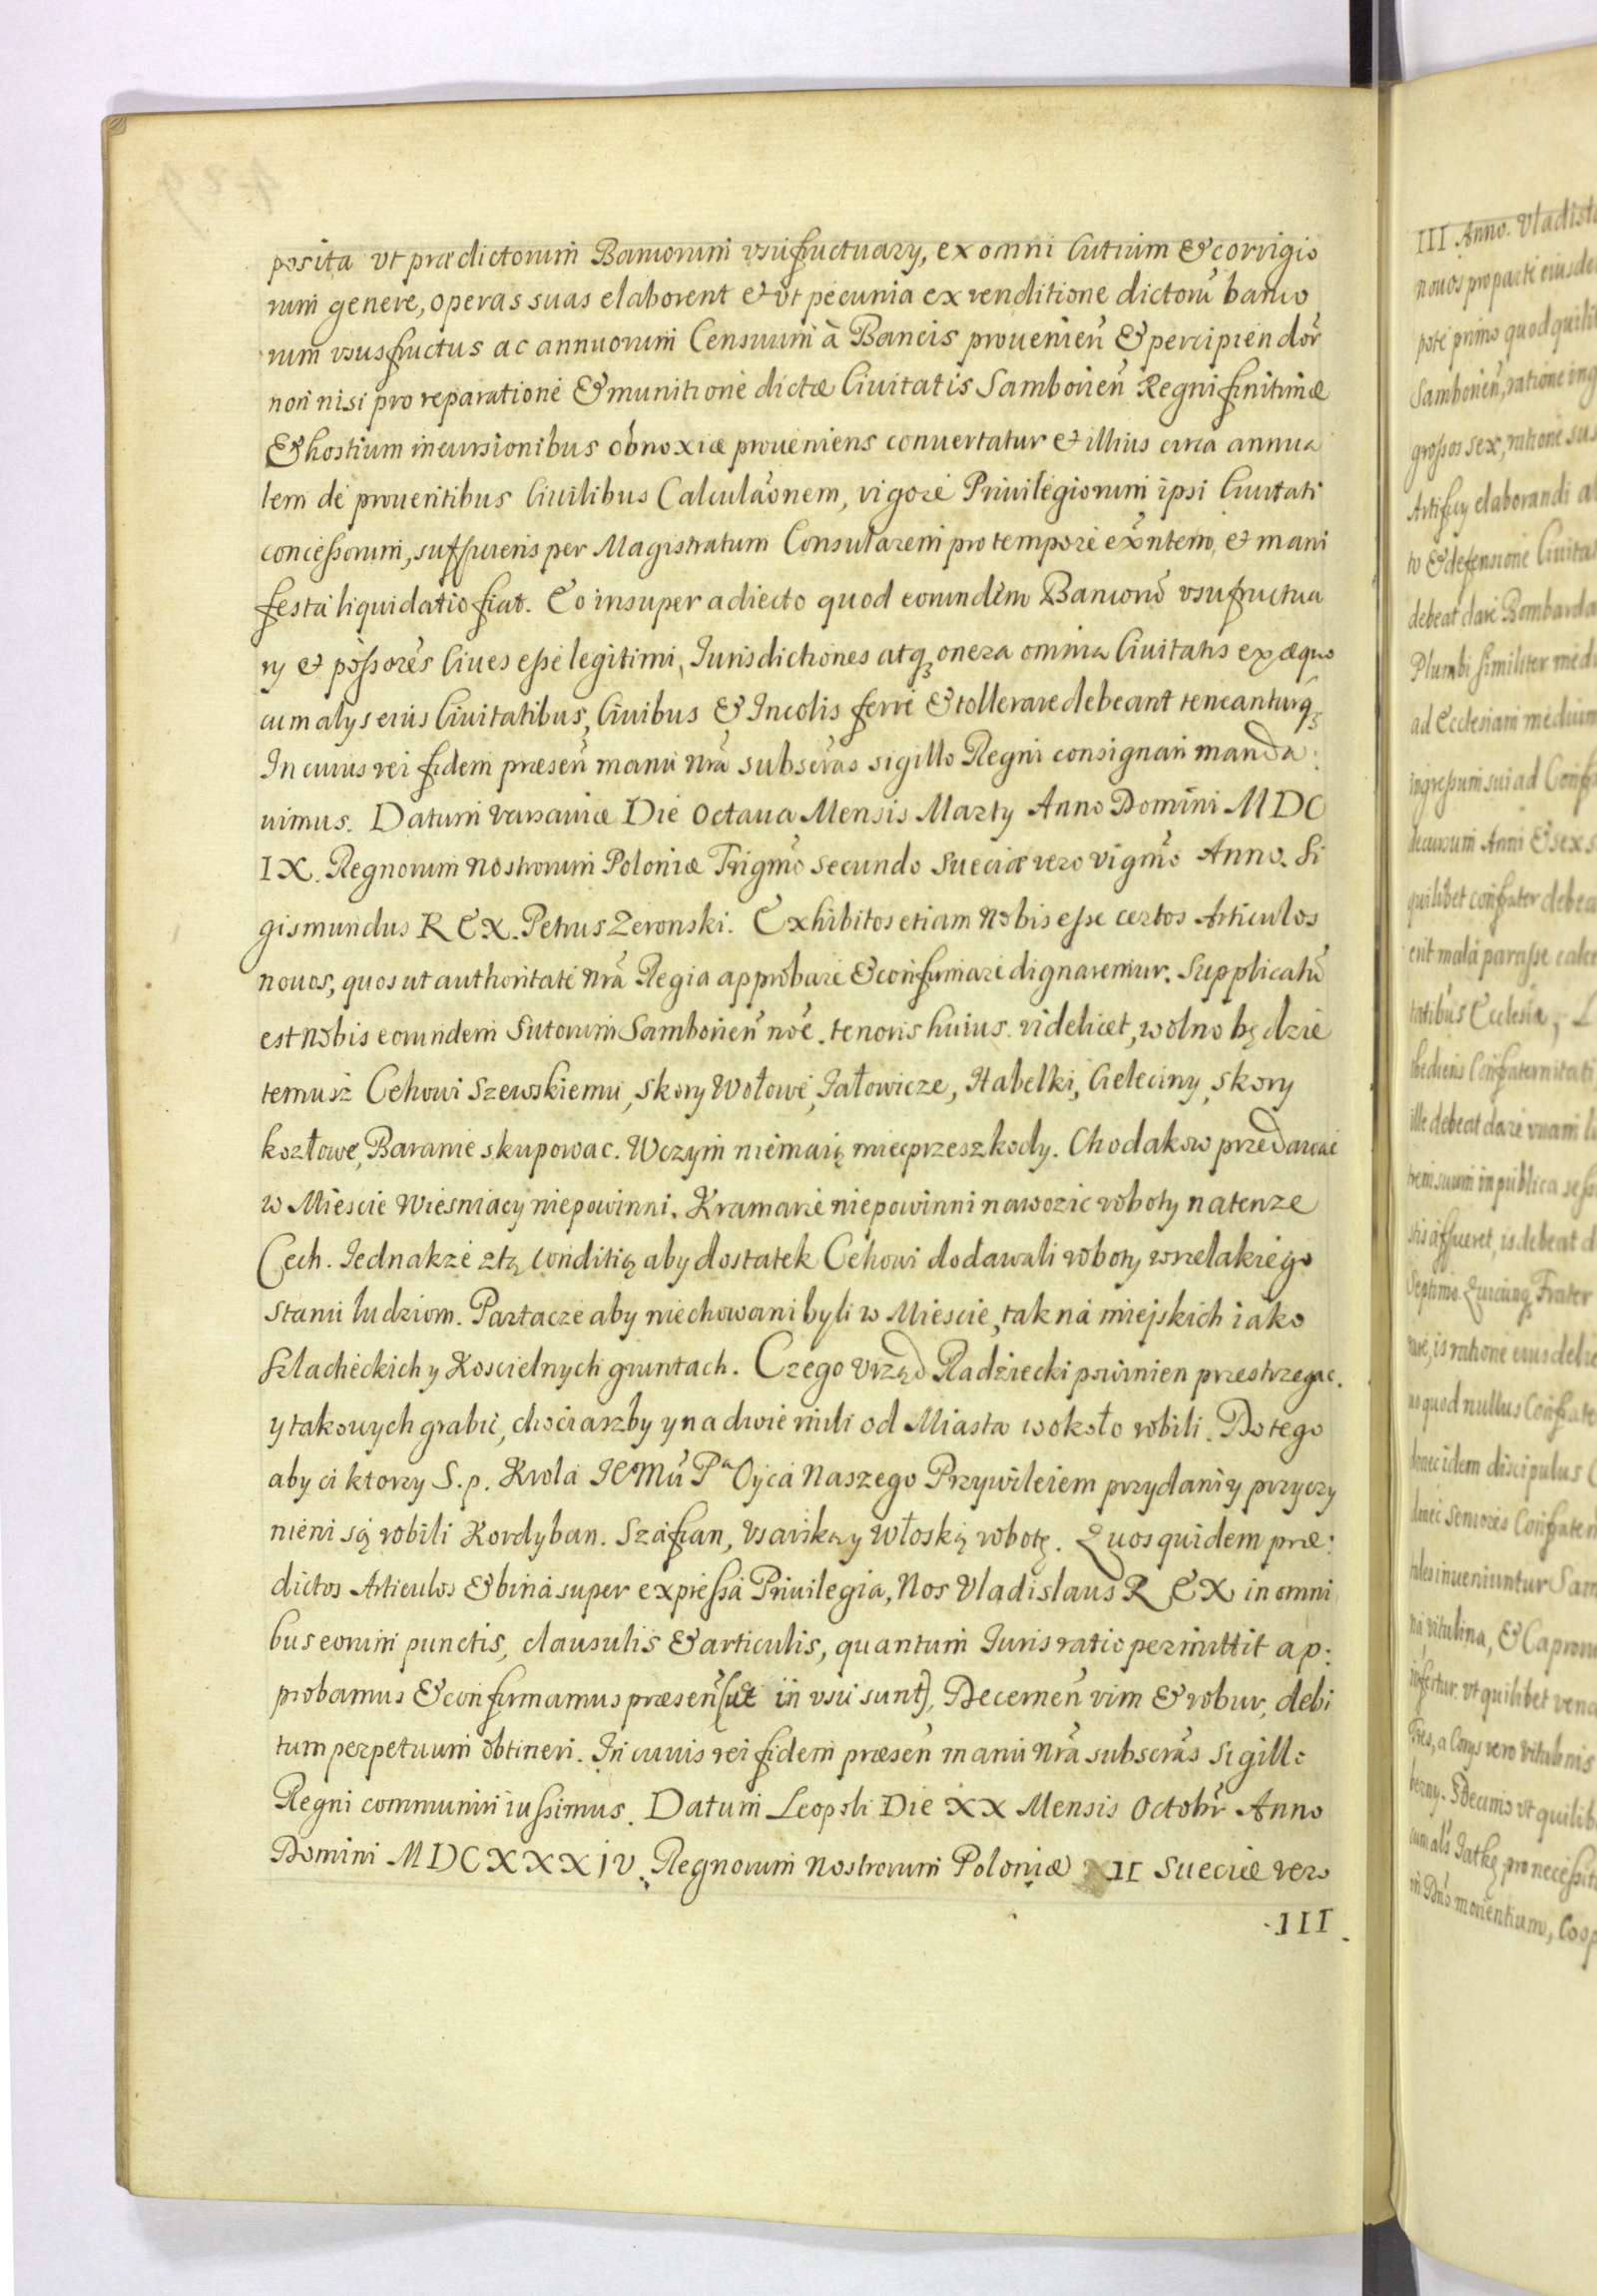 posita vt prædictorum Bancorum vsufructuary, ex omni Cutium & corrigio
rum genere, operas suas elaborent et vt pecunia ex venditione dictorũ banco
rum vsusfructus ac annuorum Censuum à Bancis prouenień & percipiendor
non nisi pro reparatione & munitione dictæ Ciuitatis Samborień Regni finitimæ
& hostium incursionibus obnoxiæ proueniens conuertatur et illius circa annua
lem de prouentibus Ciuilibus Calculãonem, vigore Priuilegiorum ipsi Ciuitati
concessorum, sufficiens per Magistratum Consularem pro tempore exñtem, et mani
festa liquidatio fiat. Eo insuper adiecto quod eorundem Bancorũ vsufructua
ry et possores Ciues esse legitimi, Iurisdictiones atqꝫ onera omnia Ciuitatis ex æquo
cum alys eius Ciuitatibus, Ciuibus & Incolis ferre & tollerare debeant teneanturqꝫ
In cuius rei fidem præseñ manu nrã subscras sigillo Regni consignari manda:
uimus. Datum Varsauiæ Die Octaua Mensis Marty Anno Domini MDC
IX. Regnorum nostrorum Poloniæ Trigm̃o secundo Sueciæ vero vigm̃o Anno. Si
gismundus REX. Petrus Zeronski. Exhibitos etiam Nobis esse certos Articulos
nouos, quos ut authoritate nrã Regia approbare & confirmare dignaremur. Supplicatũ
est Nobis eorundem Sutorum Samborień noe. tenoris huius. videlicet, wolno będzie
temusz Cehowi Szewskiemu, skory Wołowe, Jałowicze, Kabelki, Cieleciny, skory
kozłowe, Baranie skupowac. W czym niemaią miec przeszkody. Chodakow przedawac
w Miescie Wiesniacy niepowinni. Kramarze niepowinni nawozic roboty na tenze
Cech. Jednakze z tą conditią aby dostatek Cehowi dodawali roboty wszelakiego
Stanu ludziom. Partacze aby niechowani byli w Miescie, tak na miejskich iako
Szlacheckich y Koscielnych gruntach. Czego Vrząd Radziecki powinien przestrzegac.
y takowych grabic, chociaszby y na dwie mili od Miasta wokoło robili. Do tego
aby ci ktorzy S.p. Krola JEMũ Pᵃ Oyca Naszego Przywileiem przydani y przyczy
nieni są robili Kordyban. Szafian, Vsarską y Włoską robotę. Quos quidem præ:
dictos Articulos & bina super expressa Priuilegia, Nos Vladislaus REX in omni
bus eorum punctis, clausulis & articulis, quantum Iuris ratio permittit ap:
probamus & confirmamus præseñ (ut in vsu sunt), Decerneñ vim & robur, debi
tum perpetuum obtineri. In cuius rei fidem præseñ manu nrã subscras Sigillo
Regni communiri iussimus. Datum Leopoli Die XX Mensis Octobr Anno
Domini MDCXXXIV. Regnorum nostrorum Poloniæ II Sueciæ vero
III
III Anno. Vladisla
nouos pro parte eiusde
pote primo quod quili
Samborień, ratione ing
grossos sex, ratione sus
Artificy elaborandi a
to & defensione Ciuita
debeat dare Bombarda
Plumbi similiter medi
ad Ecclesiam medium
ingressum sui ad Conf
decursum Anni & sex s
quilibet confrater debea
erit mala parasse calce
tatibus Ecclesia,
Confraternitati
ille debeat dare vnam li
in publica
is debeat d
Septimo. Quicunqꝫ Frater
is ratione eius
quod nullus Confrate
donec idem discipulus
donec seniores Confrater
inueniuntur Sam
vitulina, & Capronu
vt quilibet vend
vero vitulinis
Decimo vt quilib
pro necessit
morientium,